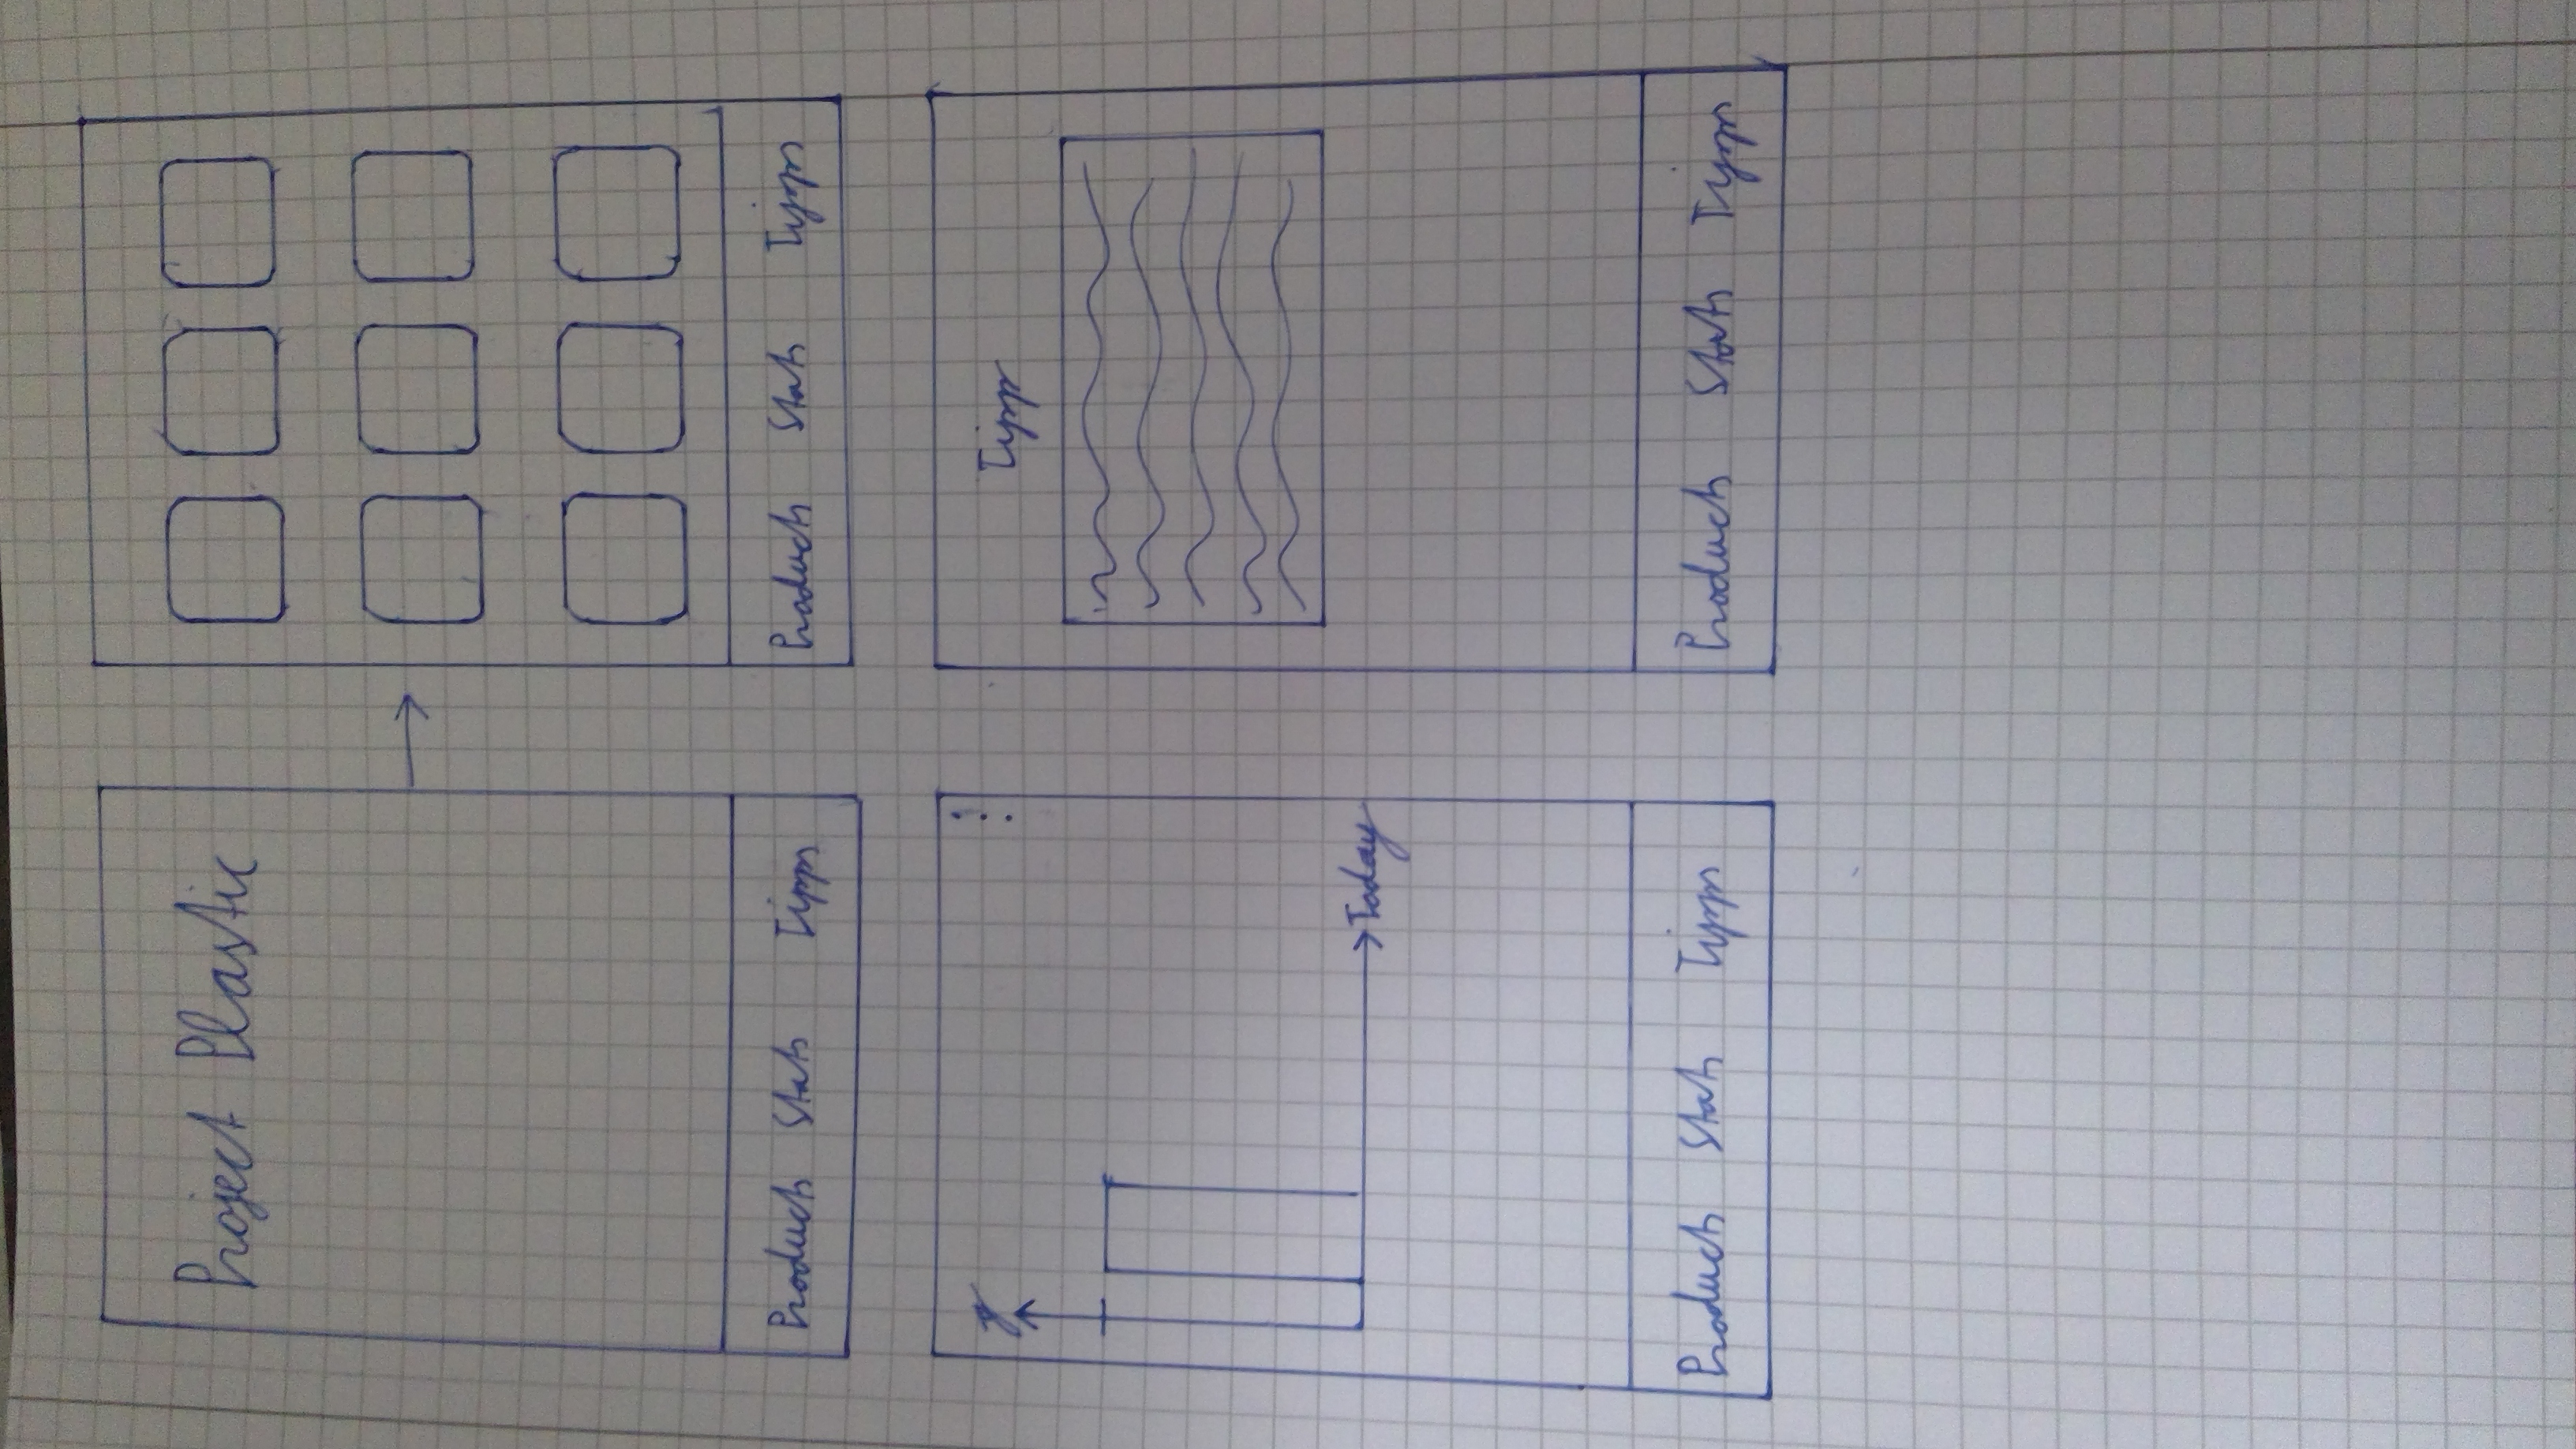 Project Plastic
Products Stats Tipps
Products Stats Tipps
g
Today
Products Stats Tipps
Tipps
Products Stats Tipps